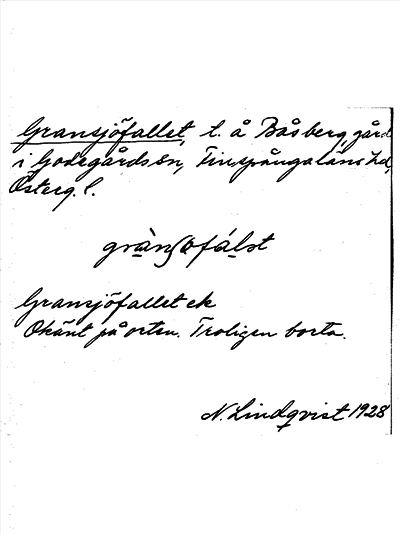 Gransjöfallet, l. å Båsberg, gård
i Godegårds sn, Finspånga läns hd,
Österg. l.
grànʃöfálət
Gransjöfallet ek
Okänt på orten. Troligen borta.
N. Lindqvist 1928